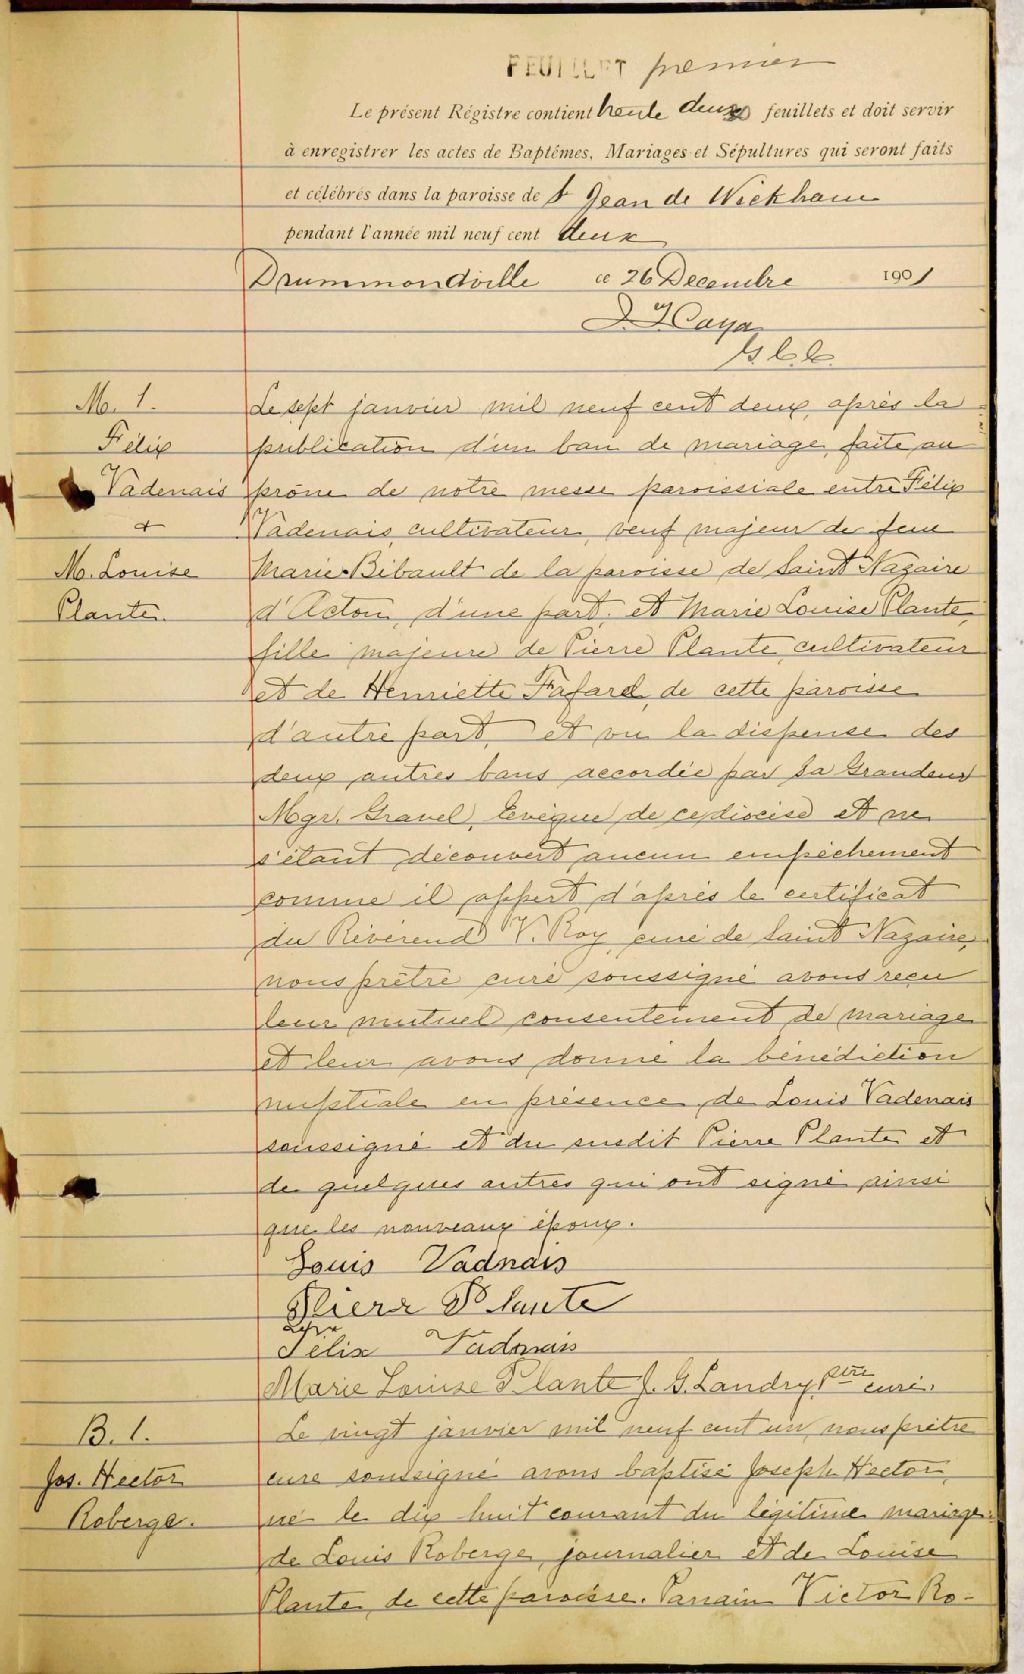 FEUILLET premier
Le présent Régistre contient trente deux feuillets et doit servir
à enregistrer les actes de Baptêmes, Mariages et Sépultures qui seront faits
et célébrés dans la paroisse de St Jean de Wickham
pendant l'année mil neuf cent deux
Drummondville ce 26 Decembre 1901
J. Caya
G. C. C.
M. 1.
Félix
Vadenais
+
M. Louise
Plante.
Le sept janvier mil neuf cent deux, après la
publication d'un ban de mariage, faite au
prône de notre messe paroissiale entre Félix
Vadenais, cultivateur, veuf majeur de feue
Marie Bibault de la paroisse de Saint Nazaire
d'Acton, d'une part, et Marie Louise Plante,
fille majeure de Pierre Plante, cultivateur
et de Henriette Fafard, de cette paroisse
d'autre part, et vu la dispense des
deux autres bans accordée par Sa Grandeur
Mgr. Gravel, Evêque de ce diocèse et ne
s'étant découvert aucun empêchement
comme il appert d'après le certificat
du Révérend V. Roy, curé de Saint Nazaire,
nous prêtre curé soussigné avons reçu
leur mutuel consentement de mariage
et leur avons donné la bénédiction
nuptiale en présence de Louis Vadenais
soussigné et du susdit Pierre Plante et
de quelques autres qui ont signé ainsi
que les nouveaux époux.
Louis Vadnais
Pierr Plante
Félix Vadnais
Marie Louise Plante J. G. Landry, Ptre curé.
B. 1.
Jos. Hector
Roberge.
Le vingt janvier mil neuf cent un, nous prêtre
curé soussigné avons baptisé Joseph Hector,
né le dix huit courant du légitime mariage
de Louis Roberge, journalier et de Louise
Plante, de cette paroisse. Parrain Victor Ro-